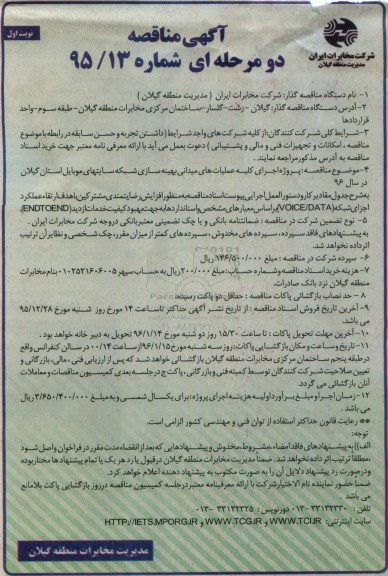 نوبت اول
آگهی مناقصه
دو مرحله ای شماره ۹۵/۱۳
شرکت مخابرات ایران
مدیریت منطقه گیلان
۱- نام دستگاه مناقصه گذار: شرکت مخابرات ایران ( مدیریت منطقه گیلان )
۲- آدرس دستگاه مناقصه گذار: گیلان -رشت- گلسار-ساختمان مرکزی مخابرات منطقه گیلان-طبقه سوم-واحد
قراردادها
۳-شرایط کلی شرکت کنندگان: از کلیه شرکت های واجد شرایط ( داشتن تجربه و حسن سابقه در رابطه با موضوع
مناقصه ، امکانات و تجهیزات فنی و مالی و پشتیبانی ) دعوت بعمل می آید با ارائه معرفی نامه معتبر جهت خرید اسناد
مناقصه به آدرس مذکور مراجعه نمایند .
۴-موضوع مناقصه: پروژه اجرای کلیه عملیات های میدانی بهینه سازی شبکه سایتهای موبایل استان گیلان
در سال ۹۶
به شرح جدول مقادیر کار و دستورالعمل اجرایی پیوست اسناد مناقصه به منظور افزایش رضایتمندی مشترکین با هدف ارتقاء عملکرد
اجزای شبکه (VOICE/DATA) بر اساس معیارهای مشخص و استانداردها به جهت بهبود کیفیت خدمات از دید (ENDTOEND)
۵- نوع تضمین شرکت در مناقصه : ضمانتنامه بانکی و یا چک تضمینی معتبر بانکی در وجه شرکت مخابرات ایران .
به پیشنهادهای فاقد سپرده ، سپرده های مخدوش ، سپرده های کمتر از میزان مقرر، چک شخصی و نظایر آن ترتیب
اثر داده نخواهد شد.
۶- سپرده شرکت در مناقصه : مبلغ ۱۴۶/۵۰۰/۰۰۰ ریال
۷- هزینه خرید اسناد مناقصه و شماره حساب: مبلغ ۲۰۰/۰۰۰ ریال به حساب سپهر ۰۱۰۲۵۲۱۶۰۶۰۰۵ بنام مخابرات
منطقه گیلان نزد بانک صادرات.
۸ - حد نصاب بازگشائی پاکات مناقصه : حداقل دو پاکت رسیده
۹- آخرین تاریخ فروش اسناد مناقصه : از تاریخ نشر آگهی حداکثر تا ساعت ۱۴ مورخ روز شنبه مورخ ۹۵/۱۲/۲۸
می باشد.
۱۰- آخرین مهلت تحویل پاکات : تا ساعت ۱۵/۳۰ روز دو شنبه مورخ ۹۶/۱/۱۴ تحویل به دبیر خانه خواهد بود .
۱۱- تاریخ و ساعت و مکان بازگشایی پاکات: روز سه شنبه مورخ ۹۶/۱/۱۵ از ساعت ۰۰/۱۴ در سالن کنفرانس واقع
در طبقه پنجم ساختمان مرکزی مخابرات منطقه گیلان بازگشائی خواهد شد که پس از ارزیابی فنی ، مالی ، بازرگانی و
تعیین صلاحیت شرکت کنندگان توسط کمیته فنی و بازرگانی ، پاکت ج در جلسه بعدی کمیسیون مناقصات و معاملات
آنان بازگشائی می گردد.
۱۲- زمان اجرا و مبلغ برآورد اولیه هزینه اجرای پروژه: برای یکسال شمسی و به مبلغ ۳/۶۵۰/۴۰۰/۰۰۰ ریال می
باشد .
** رعایت قانون حداکثر استفاده از توان فنی و مهندسی کشور الزامی است.
توجه:
الف)) به پیشنهادهای فاقد امضاء ، مشروط، مخدوش و پیشنهادهایی که بعد از انقضاء مدت مقرر در فراخوان واصل شود
، مطلقاً ترتیب اثر داده نخواهد شد. ضمناً مدیریت مخابرات منطقه گیلان در قبول یا رد هر یک یا تمام پیشنهادها مختار بوده
و در صورت رد پیشنهاد دلایل آن را به صورت مکتوب به پیشنهاد دهنده اعلام خواهد کرد.
ضمناً حضور نماینده تام الاختیار شرکت با ارائه معرفینامه معتبر در جلسه کمیسیون مناقصه در روز بازگشایی پاکت بلامانع
می باشد .
تلفن : ۳۳۱۳۲۳۳۰ -۰۱۳ دورنویس : ۳۳۱۳۲۳۲۵ -۰۱۳
سایت اینترنتی: WWW.TCI.IR و WWW.TCG.IR و HTTP://IETS.MPORG.IR
مدیریت مخابرات منطقه گیلان